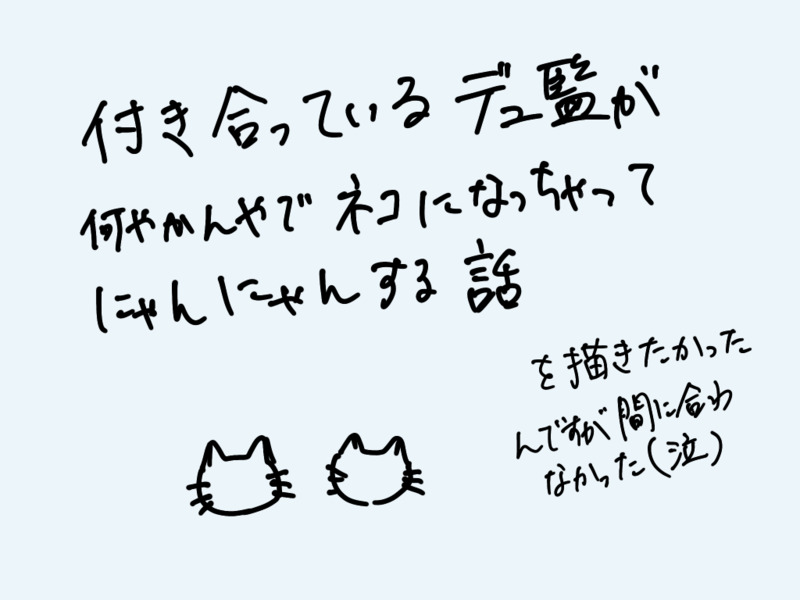 付き合っているデュ監が
何やかんやでネコになっちゃって
にゃんにゃんする話
を描きたかった
んですが間に合わ
なかった(泣)